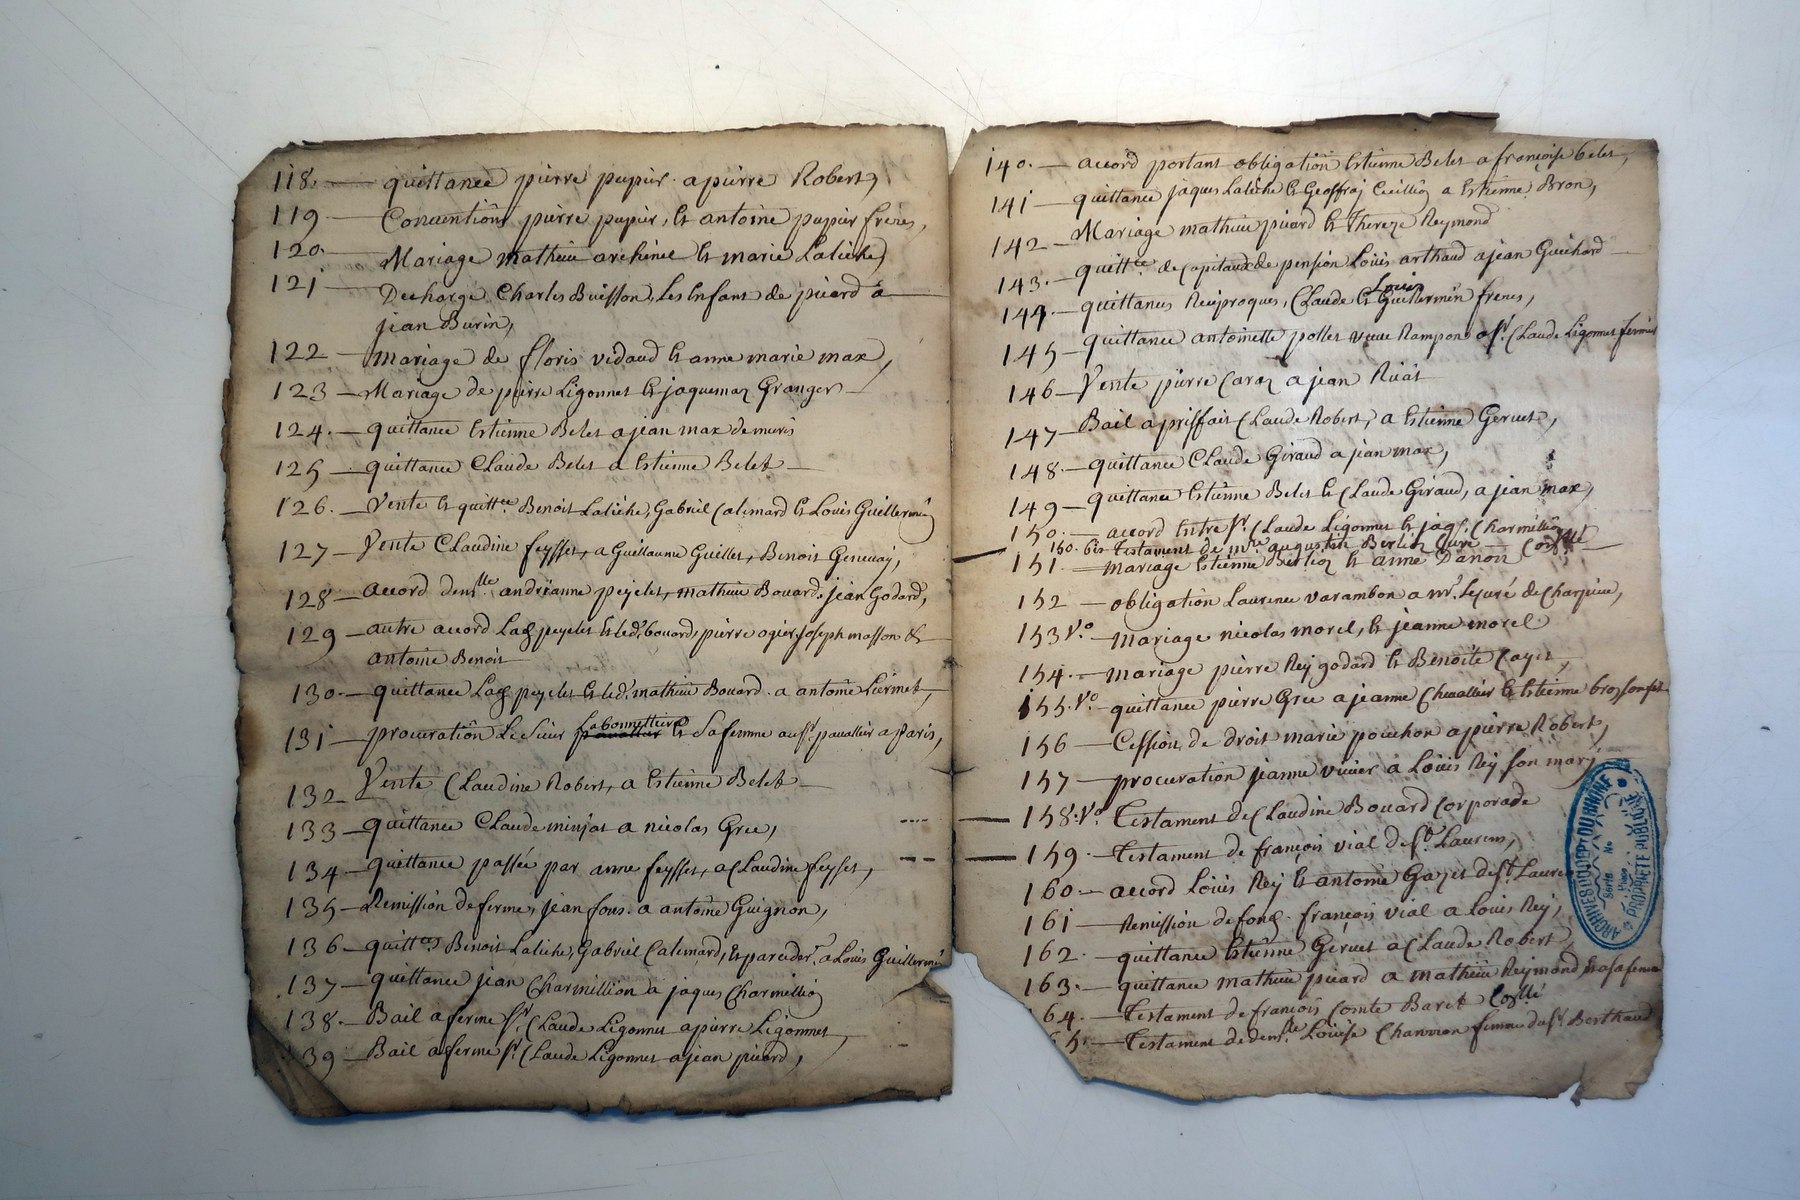 118. quittance pierre pupier a pierre Robert,
119 Conventions pierre pupier, & antoine pupier freres,
120. Mariage mathieu archinet & marie Laliche,
121 Decharge Charles Buisson, Les Enfans de picard a
jean Burin,
122 mariage de floris vidaud & anne marie max,
123 Mariage de pierre Ligonnet & jaquemaz Granger
124. quittance Estienne Belet a jean max de muris
125 quittance Claude Belet a Estienne Belet
126. Vente & quittce Benoit Laliche, Gabriel Calimard & Louis Guillermin
127 Vente Claudine feysset, a Guillaume Guillet, Benoit
128 accord demlle andrianne peyclet, mathieu Bouard, jean Godard,
129 autre accord Lad peyclet & led. bouard, pierre ogier, joseph masson &
antoine Benoit
130. quittance Lad peyclet & led. mathieu Bouard a antoine
131 procuration Le Sieur Labonnetiere & Sa femme au Sr pavallier a Paris,
132 Vente Claudine Robert, a Estienne Belet
133 quittance Claude minjat a nicolas Gree,
134 quittance passée par anne feysset, a Claudine feysset,
135 Remission de ferme, jean fous a antoine Guignon,
136 quittces Benoit Laliche, Gabriel Calimard, a Louis Guillermin
137 quittance jean Charmillion a jaques Charmillion
138. Bail a ferme Sr Claude Ligonnet a pierre Ligonnet
39 Bail a ferme Sr Claude Ligonnet a jean picard,
140. accord portant obligation Estienne Belet a françoise belet,
141 quittance jaques Laliche & Geoffray a Estienne Bron,
142 Mariage mathieu picard & Thereze Reymond
143. quittce de Capitaux de pension Louis arthaud a jean Guichard
144. quittances Reciproques, Claude & Louis Guillermin freres,
145 quittance antoinette pollet veuve Rampon a Sr Claude Ligonnet fermier
146 Vente pierre Caraz a jean Ruat
147 Bail a prisfait Claude Robert, a Estienne Gervet,
148. quittance Claude Giraud a jean max,
149 quittance Estienne Belet & Claude Giraud, a jean max,
150. accord Entre Sr Claude Ligonnet & jaqs. Charmillion
150. bis Testament de mre augustin Berlioz Curé
151. mariage Estienne Berlioz & anne Danon
152 obligation Laurence varambon a mr. Le Curé de Charpieu,
153 Vo. mariage nicolas morel, & jeanne morel
154. mariage pierre Rey godard & Benoite Cayet,
155. Vo. quittance pierre Gree a jeanne Chevallier & Estienne
156 Cession de droit marie pouchon a pierre Robert,
157 procuration jeanne vivier a Louis Rey son mary
158. Vo. Testament de Claudine Bouard Corporade
159. Testament de françois vial de St. Laurens,
160. accord Louis Rey & antoine Gayet de St. Laure
161 Remission de fond. françois vial a Louis Rey,
162. quittance Estienne Gervet a Claude Robert,
163. quittance mathieu picard a mathieu Reymond & a sa femme
64. Testament de françois Comte Baret
5. Testament de demlle Louise Channion femme du Sr Berthaud
ARCHIVES DU DEPT DU RHONE
Série
No
Pièce
PROPRIETE PUBLIQUE